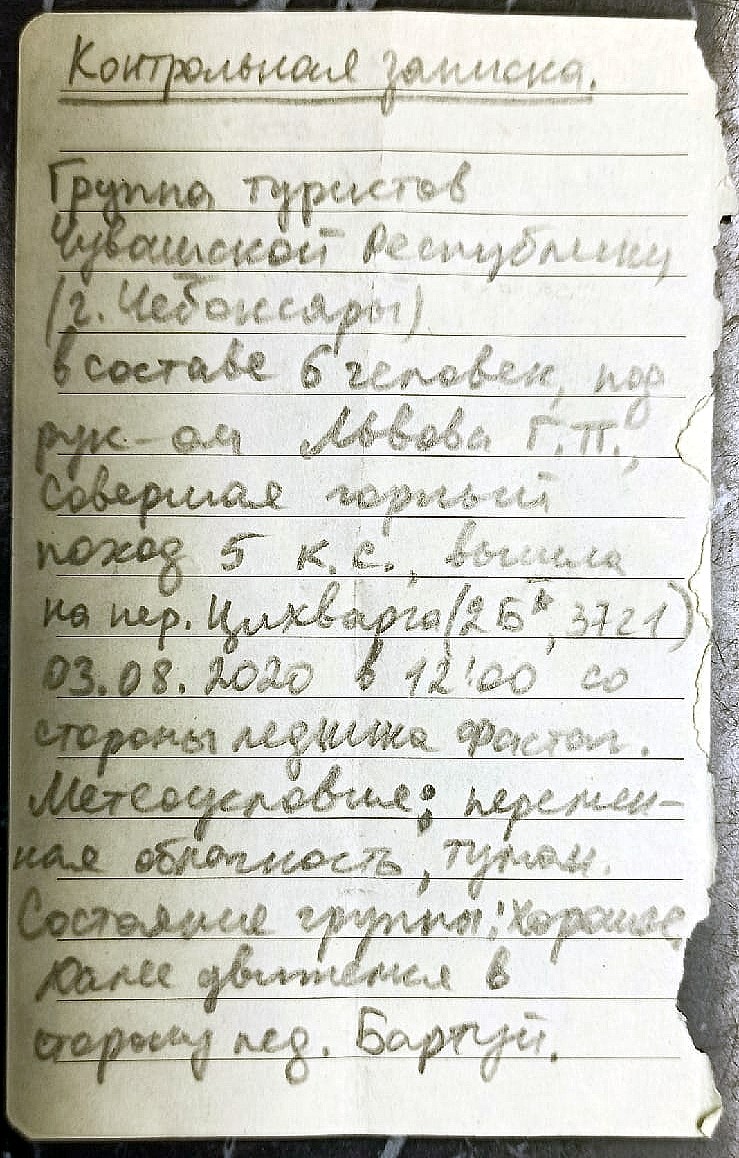 Контрольная записка.
Группа туристов
Чувашской Республики
(г. Чебоксары)
в составе 6 человек, под
рук-ом Львова Г.П.,
совершая горный
поход 5 к.с., вышла
на пер. Цихварга (2Б*, 3721)
03.08.2020 в 12:00 со
стороны ледника Фастаг.
Метеоусловие: перемен-
ная облачность, туман.
Состояние группы: хорошее
Далее движемся в
сторону лед. Бартуй.